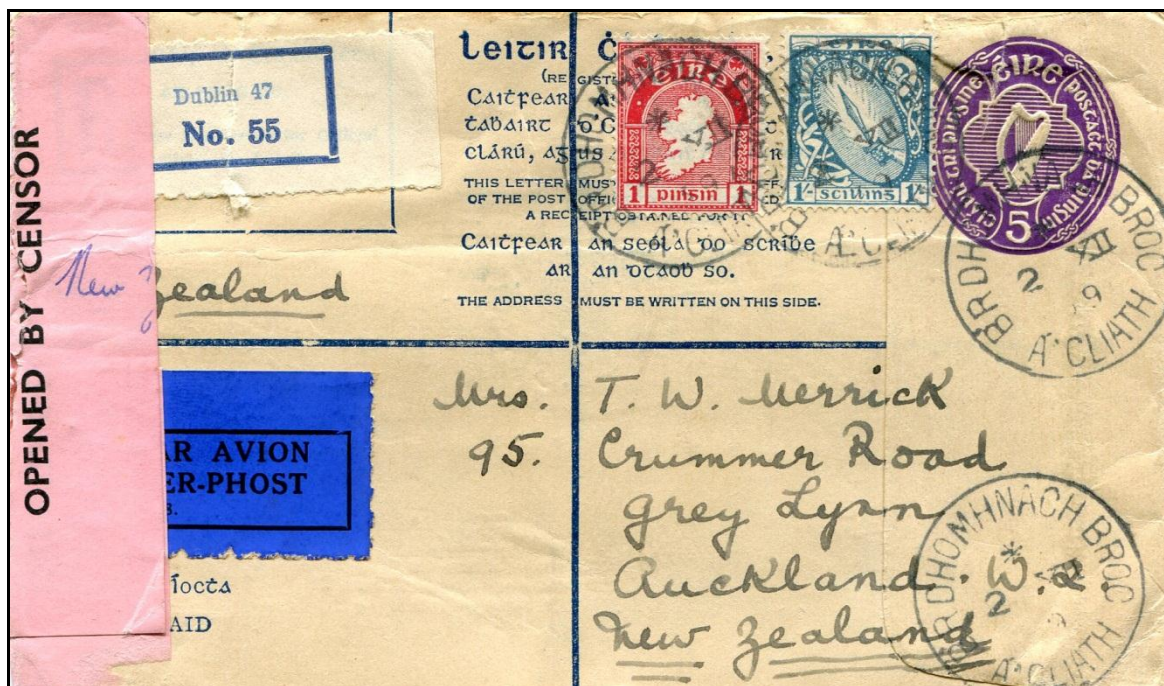 OPENED BY CENSOR
Dublin 47
No. 55
Leitir
(REGIST
Caitfear
ṫaḃairt
clárú, agus
THIS LETTER MUST
OF THE POST OFFICE
A RECEIPT OBTAINED FOR IT
Caitfear an seóla do scríbe
ar an dtaob so.
THE ADDRESS MUST BE WRITTEN ON THIS SIDE.
éire
1 pinsin 1
éire
1/- scilling 1/-
éire
POSTAGE
5
BRDHOMHNACH BROC
2 XII 9
A' CLIATH
New Zealand
AR AVION
ER-PHOST
íocta
AID
Mrs. T. W. Merrick
95. Crummer Road
Grey Lynn
Auckland. W.2.
New Zealand
BRDHOMHNACH BROC
2 XII 9
A' CLIATH